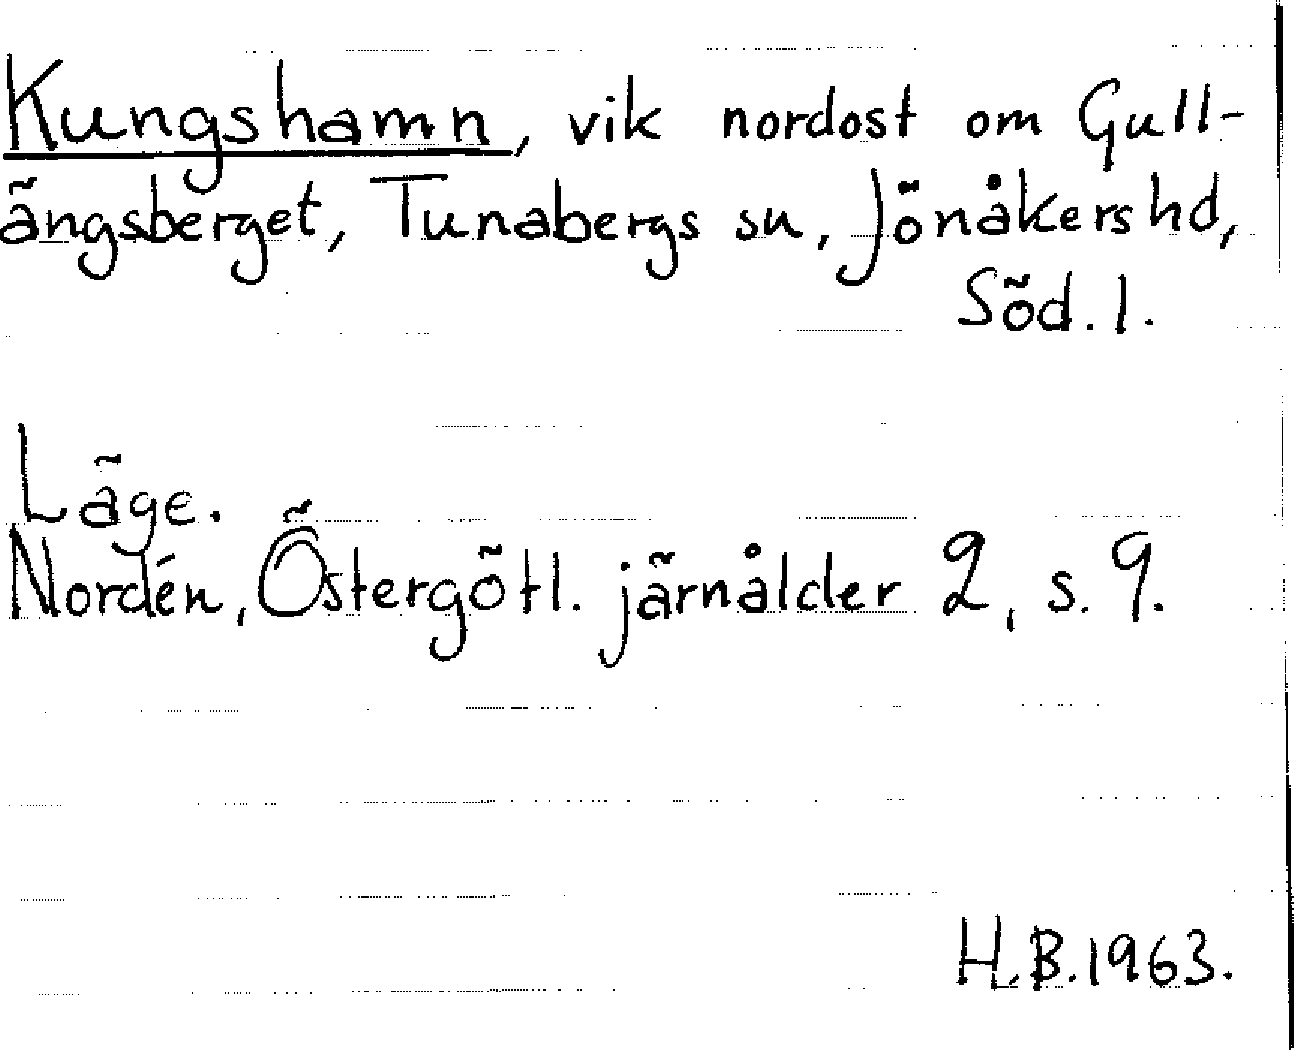 Kungshamn, vik nordost om Gull-
ängsberget, Tunabergs sn, Jönåkers hd,
Söd. l.
Läge.
Nordén, Östergötl. järnålder 2, s. 9.
H.B. 1963.